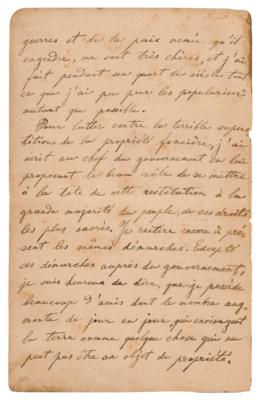 guerres et de la paix armée qu'il
engendre, me sont très chères, et j'ai
fait pendant un quart de siècle tout
ce que j'ai pu pour les populariser
autant que possible.
Pour lutter contre la terrible supers
tition de la propriété foncière, j'ai
écrit au chef du gouvernement en lui
proposant le beau rôle de se mettre
à la tête de cette restitution à la
grande majorité du peuple, de ses droits
les plus sacrés. Je réitère encore à pré
sent les mêmes démarches. Excepté
ces démarches auprès du gouvernement,
je suis heureux de dire, que je possède
beaucoup d'amis dont le nombre aug
mente de jour en jour qui envisagent
la terre comme quelque chose qui ne
peut pas être un objet de propriété.